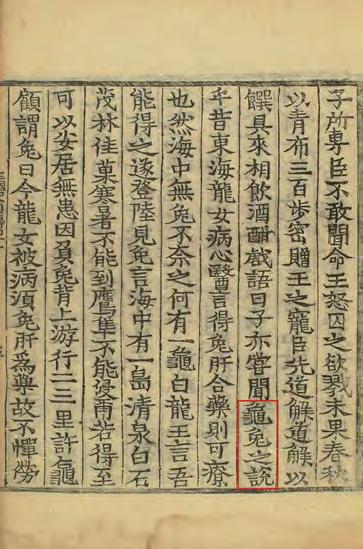 子所專臣不敢聞命王怒囚之欲戮未果春秋
以青布三百步密贈王之寵臣先道解道解以
饌具來相飲酒酣戲語曰子亦甞聞龜兔之說
乎昔東海龍女病心醫言得兔肝合藥則可療
也然海中無兔不奈之何有一龜白龍王言吾
能得之遂登陸見兔言海中有一島清泉白石
茂林佳菓寒暑不能到鷹隼不能侵爾若得至
可以安居無患因負兔背上游行二三里許龜
顧謂兔曰今龍女被病須兔肝爲藥故不憚勞